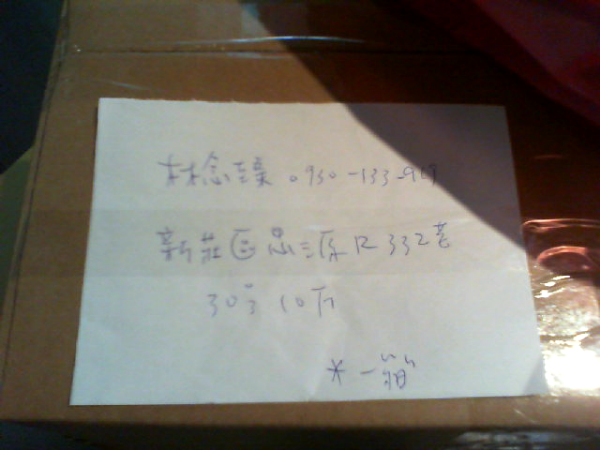 林念臻 0930-133-969
新莊區思源路332巷
30弄10所
* 一箱